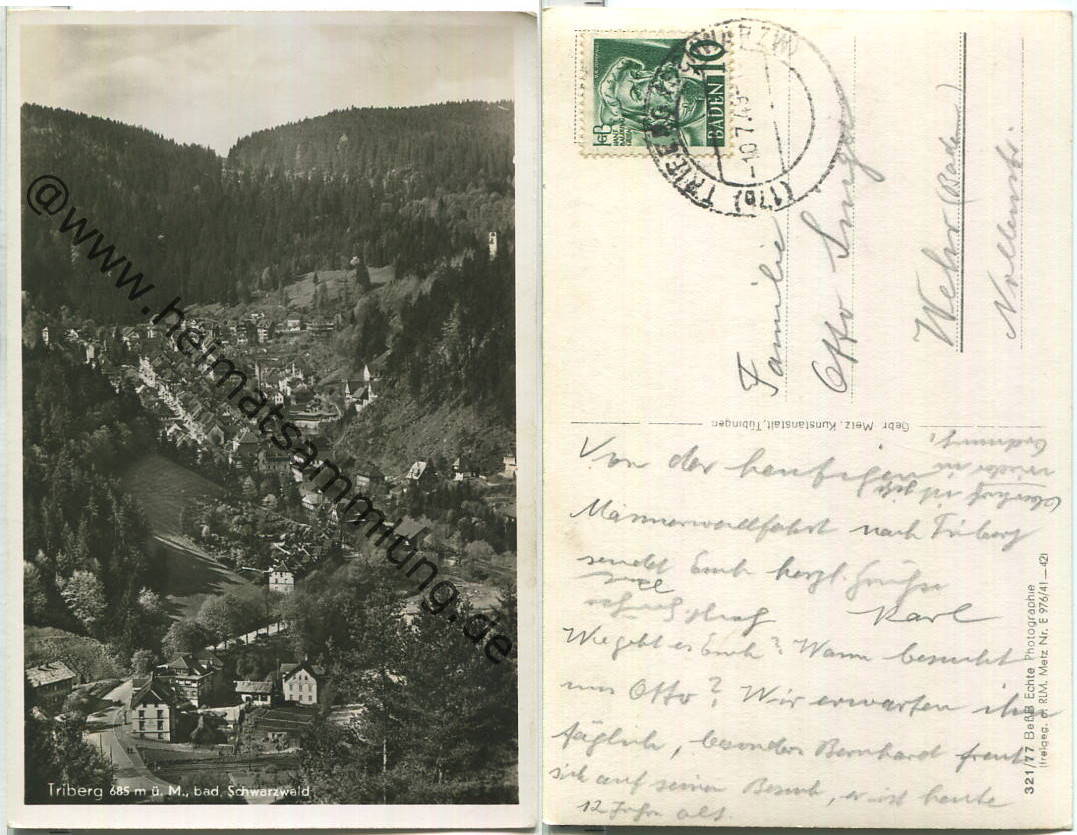 @www.heimatsammlung.de
Triberg 685 m ü. M., bad. Schwarzwald
10
BADEN
TRIBERG
-10.7.49
(17b)
Familie
Otto
Wehr (Baden)
Gebr. Metz, Kunstanstalt, Tübingen
Von der heutigen
Männerwallfahrt nach Triberg
sendet Euch herzl. Grüße
Karl
Wie geht es Euch? Wann besucht
uns Otto? Wir erwarten ihn
täglich, besonders Bernhard freut
sich auf seinen Besuch, er ist heute
12 Jahre alt.
wieder in
Ordnung!
321/77 BeBiB Echte Photographie
(freigeg. d. RLM. Metz Nr. E 976/41—42)